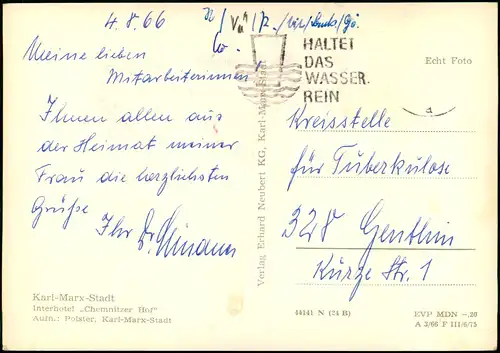 4.8.66
Meine lieben
Mitarbeiterinnen!
Ihnen allen aus
der Heimat meiner
Frau die herzlichsten
Grüße
Ihr Dr.
Karl-Marx-Stadt
Interhotel „Chemnitzer Hof"
Aufn.: Polster, Karl-Marx-Stadt
Verlag Erhard Neubert KG, Karl-Marx-Stadt
HALTET
DAS
WASSER
REIN
Echt Foto
Kreisstelle
für Tuberkulose
328 Genthin
Kurze Str. 1
44141 N (24 B)
EVP MDN -.20
A 3/66 F III/6/75